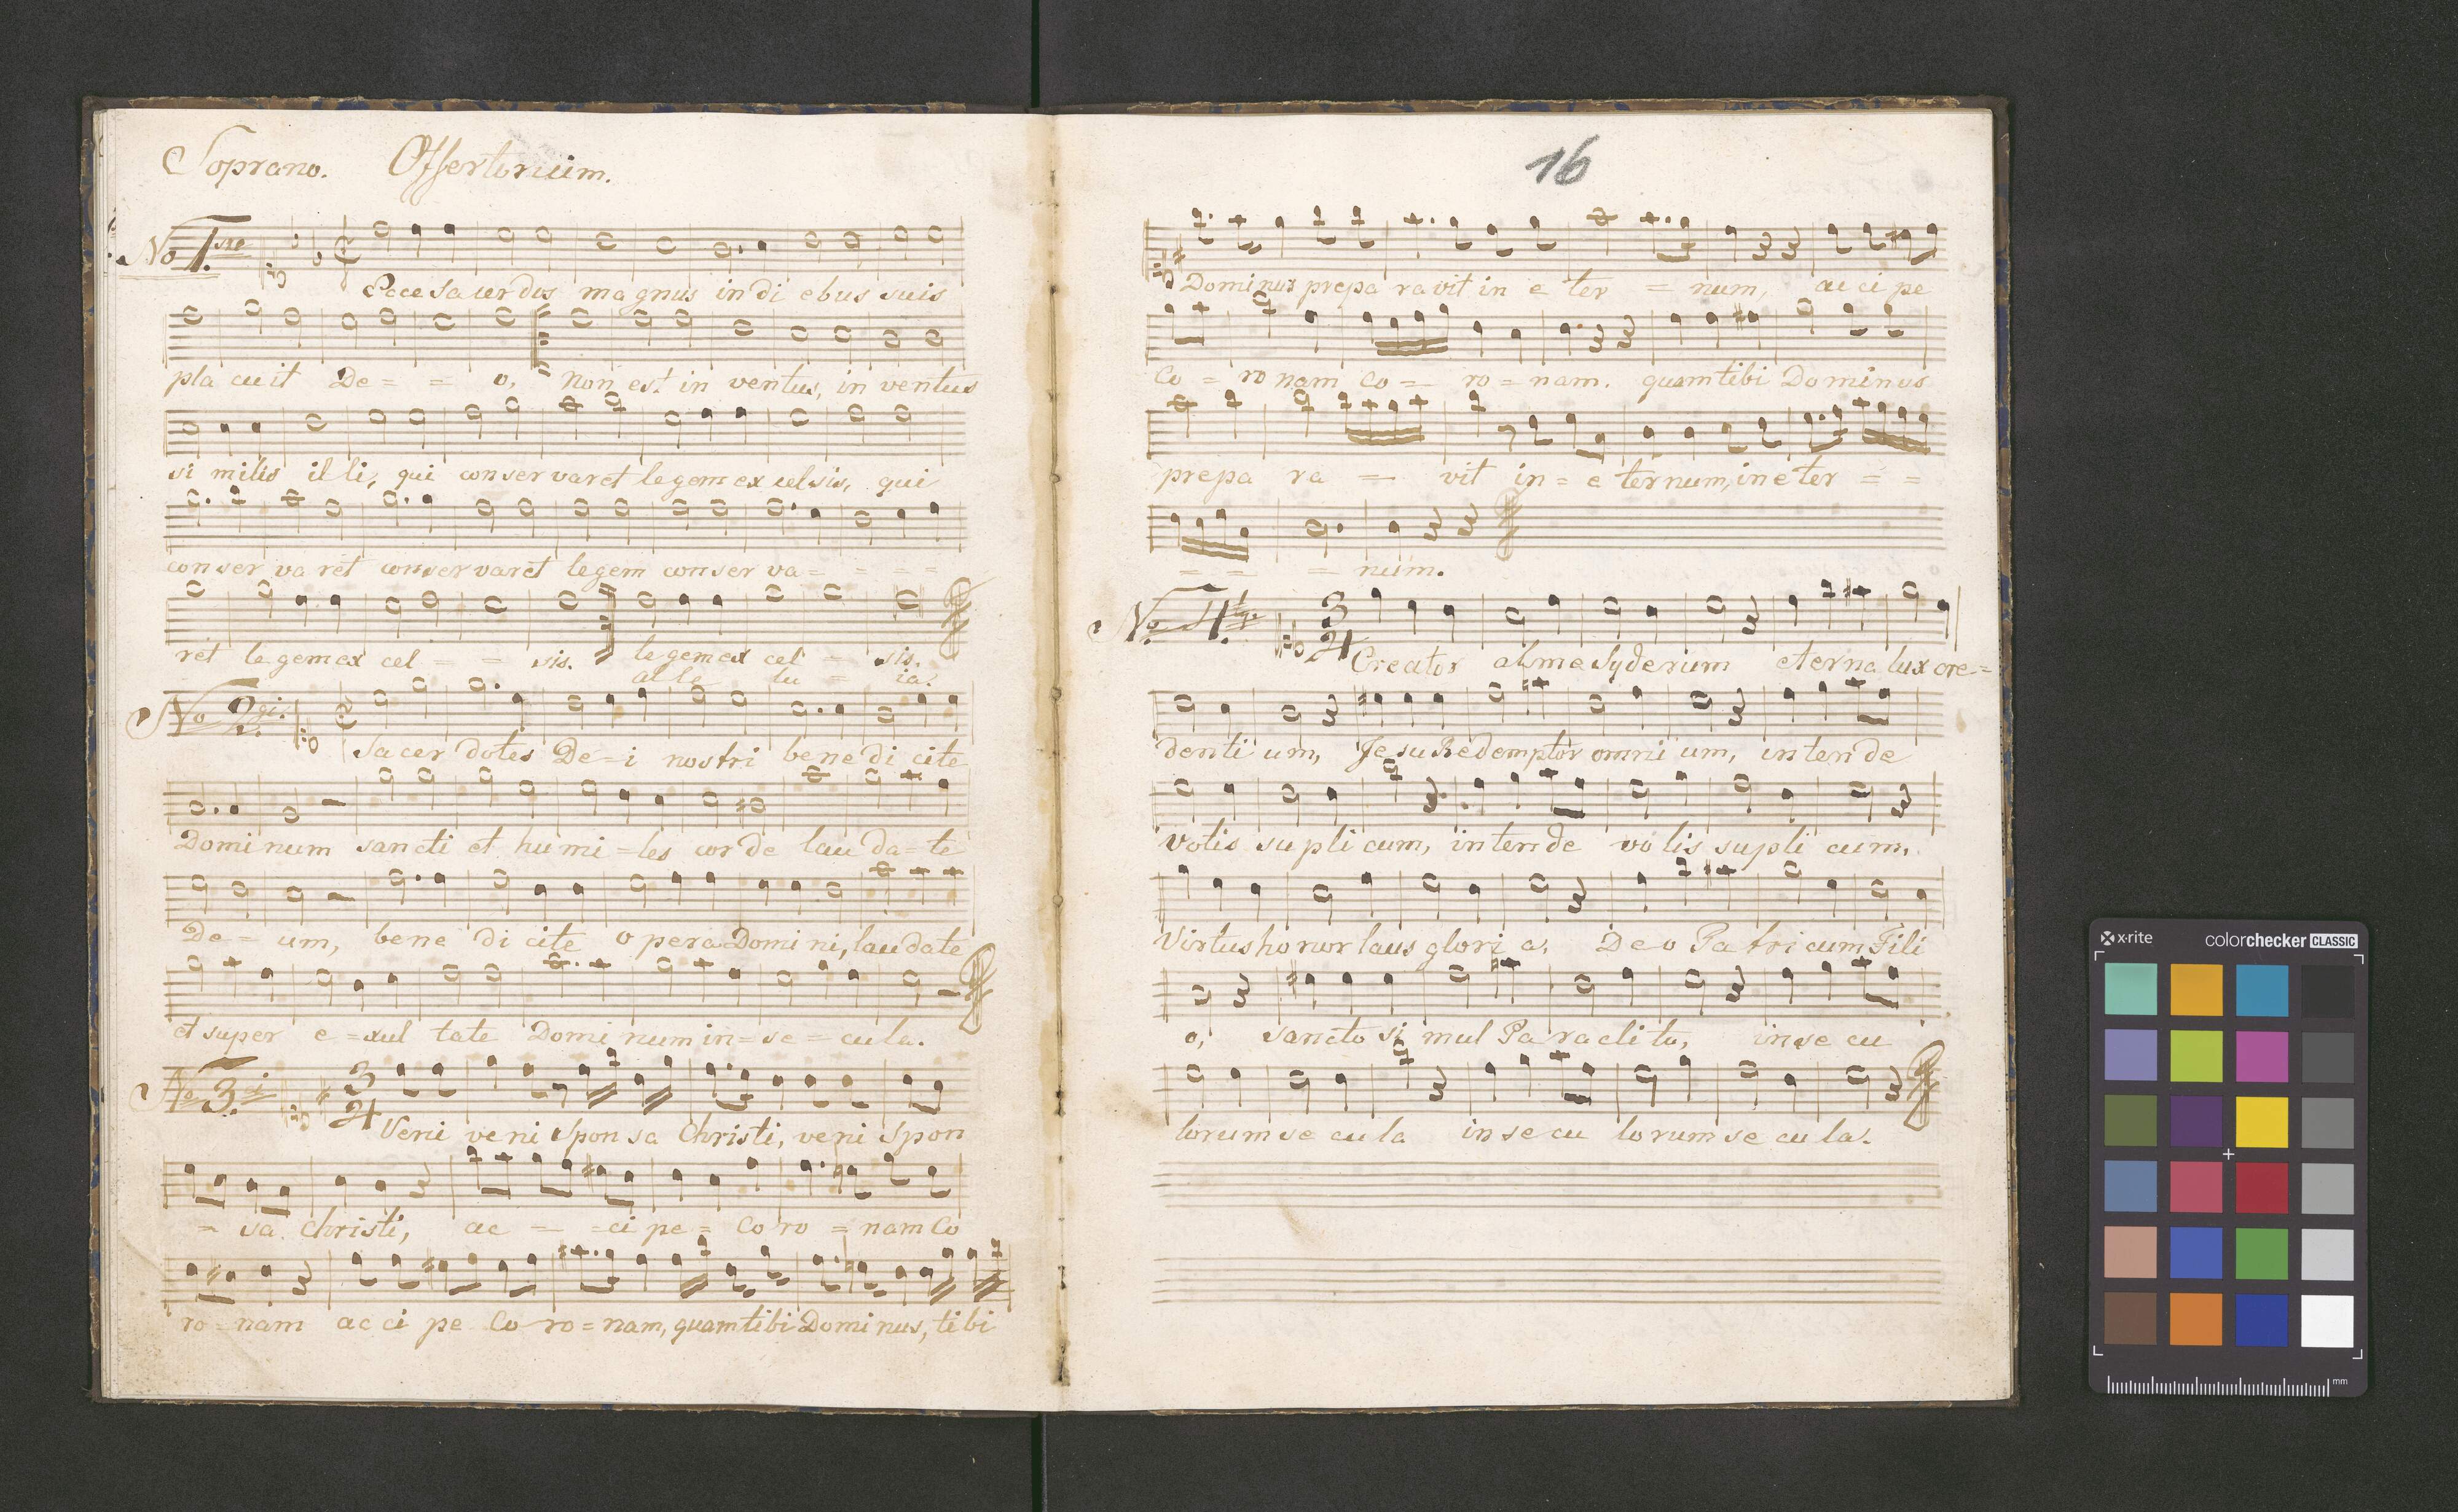 Soprano. Offertorium.
No 1.mo
Ecce Sacerdos magnus in di ebus suis
pla cuit De = = o, non est in ventus, in ventus
si milis il li, qui conser varet legem ex celsis, qui
conser va ret conser varet legem conser va = = = =
ret legem ex cel = = sis. legem ex cel = sis.
alle lu = ia.
No 2.gi.
Sacer dotes De = i nostri bene di cite
Domi num sancti et humi = les cor de lau da = te
De = um, bene di cite o pera Domi ni, laudate
et super e = xul tate Domi num in = se = cu la.
No 3.i
Veni veni Spon sa Christi, veni Spon
= sa Christi, ac = = ci pe = Co ro = nam Co
ro = nam ac ci pe Co ro = nam, quam tibi Domi nus, tibi
16
Dominus prepa ravit in e ter = num, ac ci pe
Co = ro nam Co = ro = nam. quam tibi Dominus
prepa ra = vit in = e ternum, in e ter = =
= = = num.
No 4.
3
4
Creator alme Syderum eterna lux cre =
denti um, Jesu Redemptor omni um, inten de
votis supli cum, inten de vo tis supli cum,
Virtus honor laus glori a, Deo Pa tri cum Fili
o, sancto si mul Pa racli to, in se cu
lorum se cu la in se cu lo rum se cu la.
x·rite colorchecker CLASSIC
mm